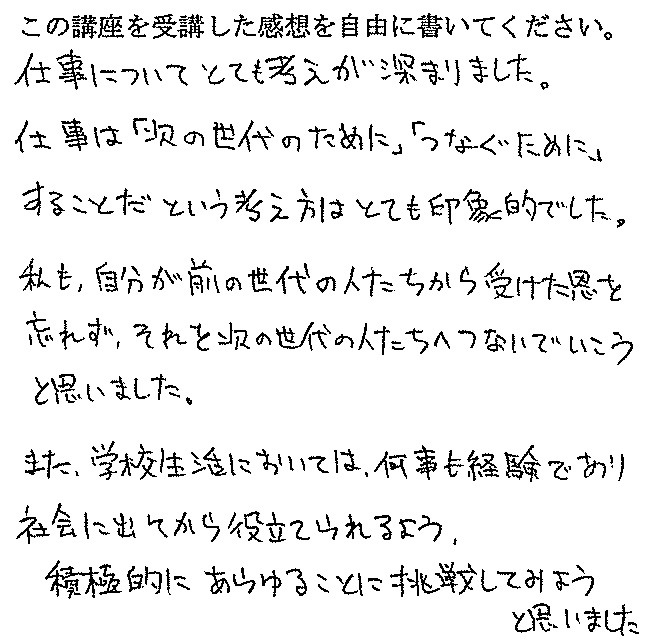 この講座を受講した感想を自由に書いてください。
仕事についてとても考えが深まりました。
仕事は「次の世代のために」「つなぐために」
することだという考え方はとても印象的でした。
私も、自分が前の世代の人たちから受けた恩を
忘れず、それを次の世代の人たちへつないでいこう
と思いました。
また、学校生活においては、何事も経験であり
社会に出てから役立てられるよう、
積極的にあらゆることに挑戦してみよう
と思いました